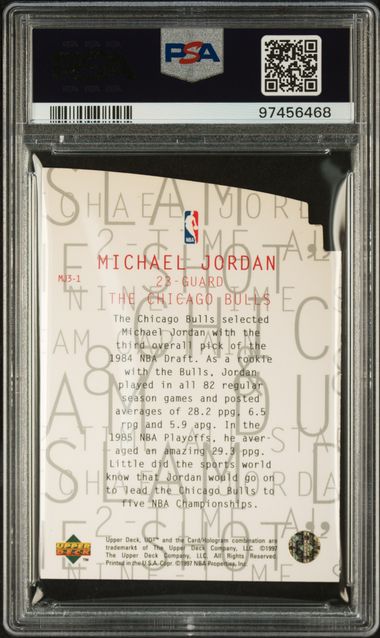 PSA
97456468
NBA
MJ3-1
MICHAEL JORDAN
23-GUARD
THE CHICAGO BULLS
The Chicago Bulls selected
Michael Jordan with the
third overall pick of the
1984 NBA Draft. As a rookie
with the Bulls, Jordan
played in all 82 regular
season games and posted
averages of 28.2 ppg, 6.5
rpg and 5.9 apg. In the
1985 NBA Playoffs, he aver-
aged an amazing 29.3 ppg.
Little did the sports world
know that Jordan would go on
to lead the Chicago Bulls to
five NBA Championships.
UPPER
DECK
TM
Upper Deck, UD3™ and the Card/Hologram combination are
trademarks of The Upper Deck Company, LLC. ©1997
The Upper Deck Company, LLC. All Rights Reserved.
Printed in the U.S.A. Copr. ©1997 NBA Properties, Inc.